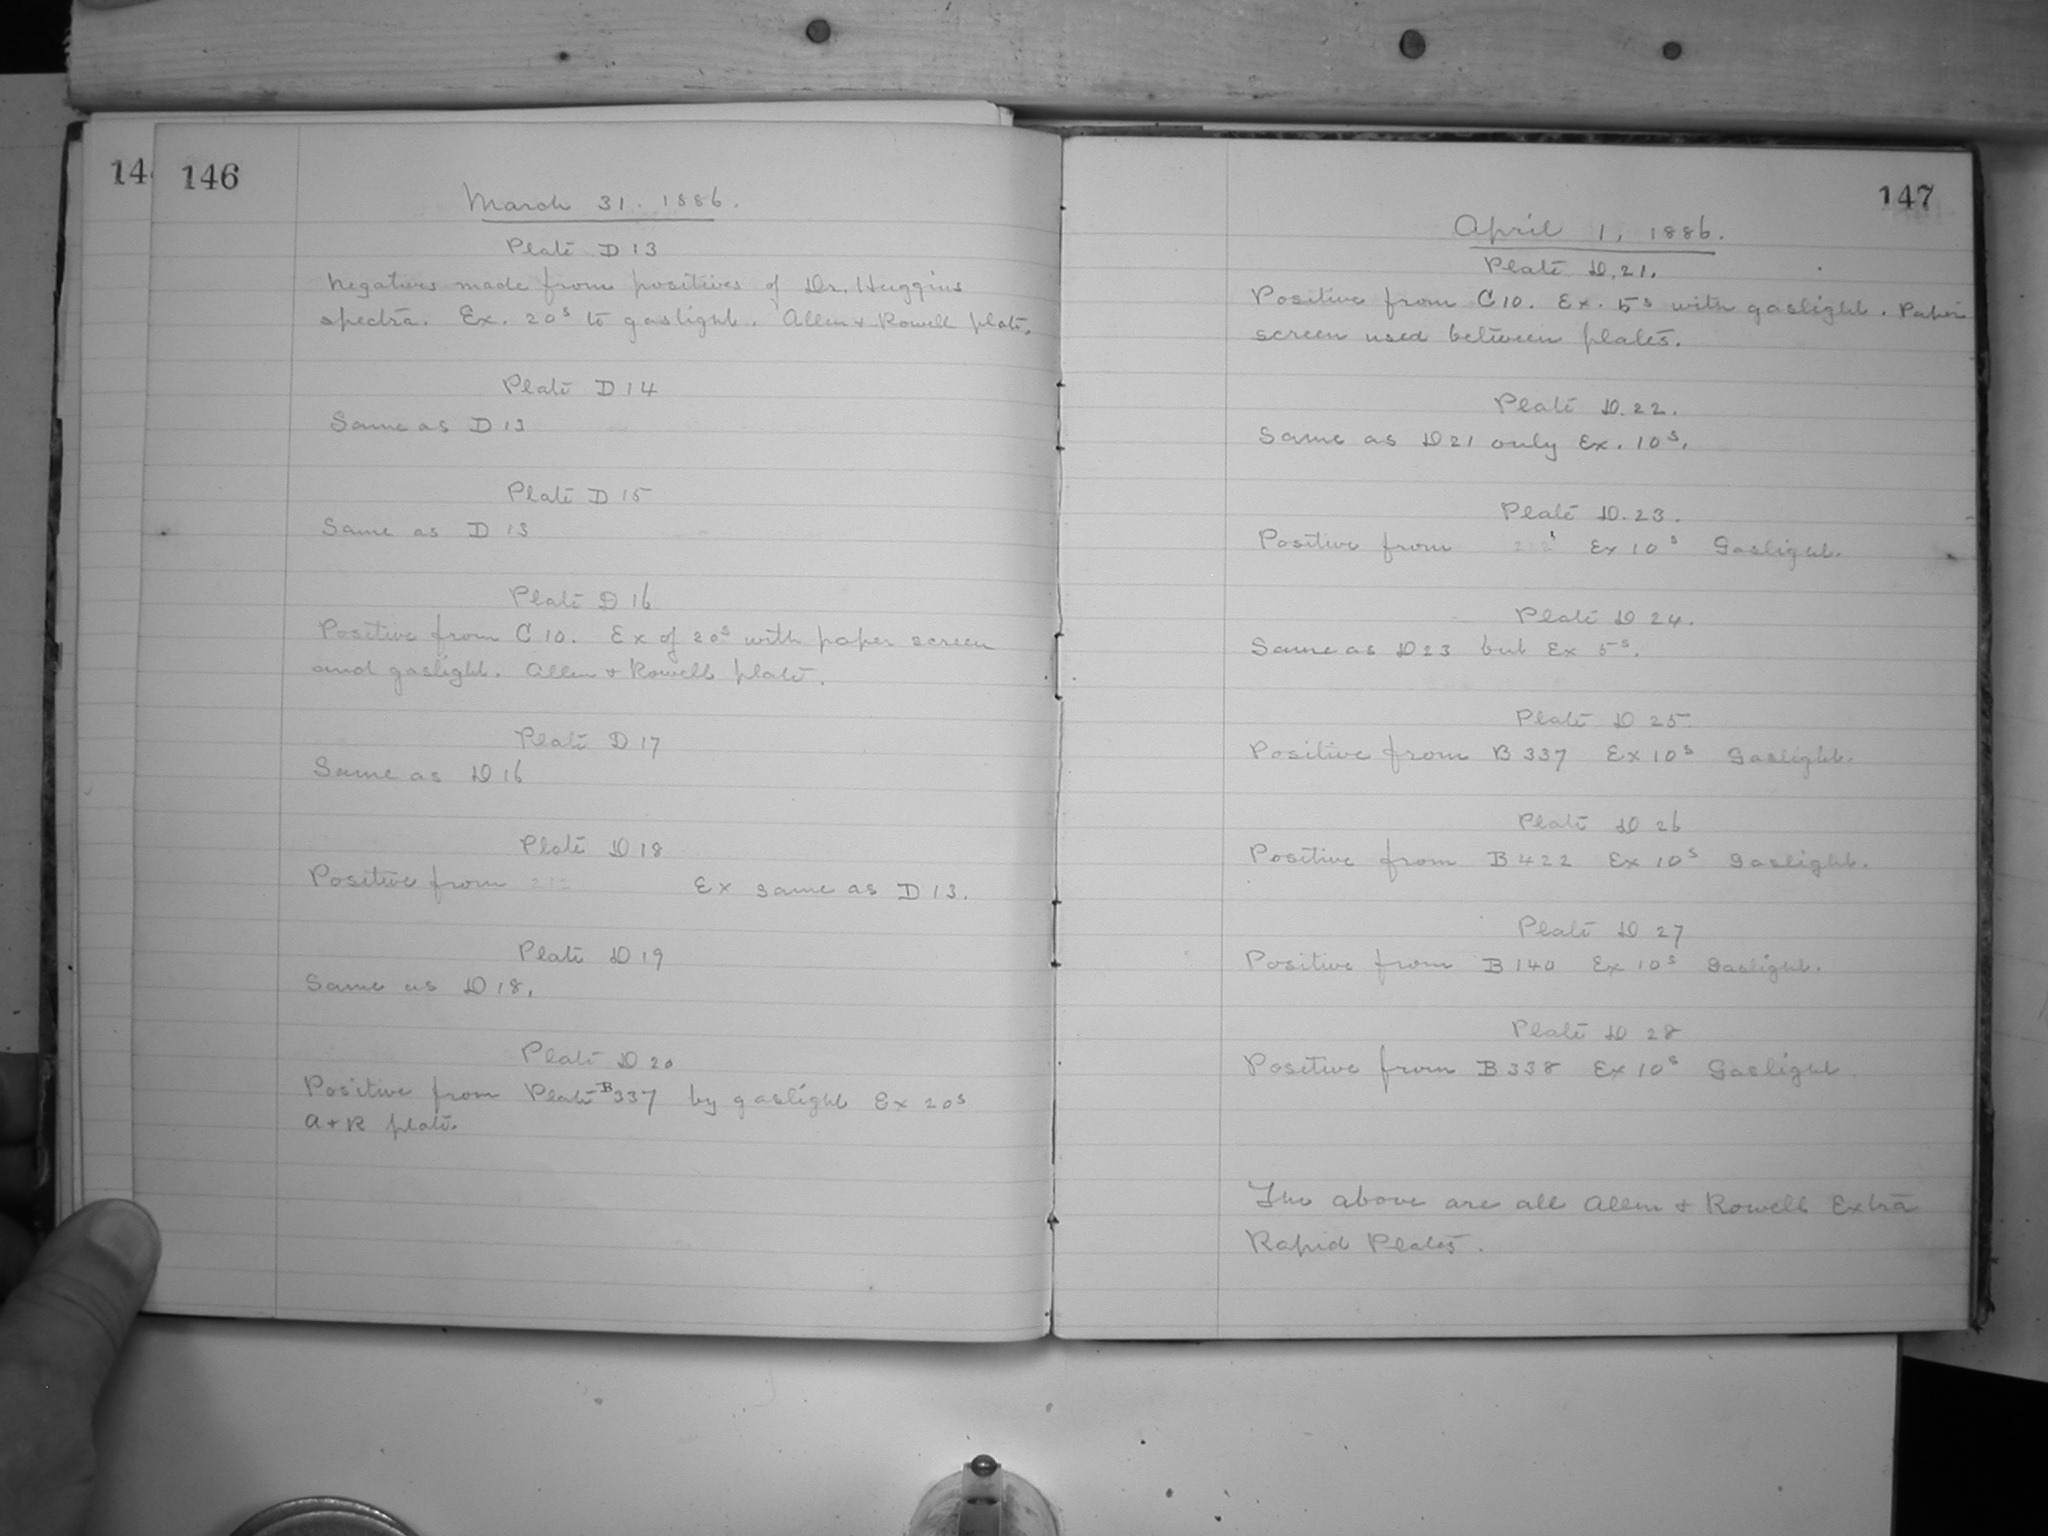 14
146
March 31. 1886.
Plate D 13
Negatives made from positives of Dr. Huggins
spectra. Ex. 20s to gaslight. Allen & Rowell plate.
Plate D 14
Same as D 13
Plate D 15
Same as D 13
Plate D 16
Positive from C 10. Ex of 20s with paper screen
and gaslight. Allen & Rowell plate.
Plate D 17
Same as D 16
Plate D 18
Positive from 212 Ex same as D 13.
Plate D 19
Same as D 18.
Plate D 20
Positive from Plate B 337 by gaslight Ex 20s
A + R plate.
147
April 1, 1886.
Plate D. 21.
Positive from C 10. Ex. 5s with gaslight. Paper
screen used between plates.
Plate D. 22.
Same as D 21 only Ex. 10s.
Plate D. 23.
Positive from 212 Ex 10s Gaslight.
Plate D 24.
Same as D 23 but Ex 5s.
Plate D 25.
Positive from B 337 Ex 10s Gaslight.
Plate D 26
Positive from B 422 Ex 10s Gaslight.
Plate D 27
Positive from B 140 Ex 10s Gaslight.
Plate D 28
Positive from B 338 Ex 10s Gaslight.
The above are all Allen & Rowell Extra
Rapid Plates.